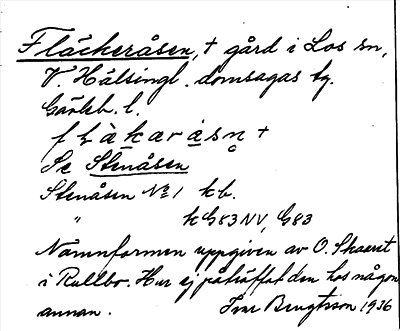 Fläckeråsen, + gård i Los sn,
V. Hälsingl. domsagas tg.
Gävleb. l.
Se Stenåsen
Stenåsen No 1 kb.
" k G83 NV, G83
Namnformen uppgiven av O. Skaerst
i Rullbo. Har ej påträffat den hos någon
annan. Ivar Bengtsson 1936